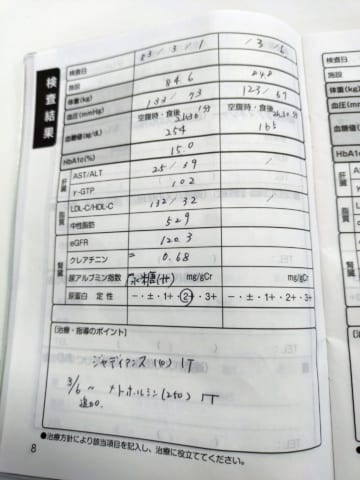 検査結果
検査日 3 / 1 / 3 / 6
施設
体重(kg) 84.6 84.8
血圧(mmHg) 133 / 93 123 / 67
血糖値(mg/dL) 空腹時・食後 2h30分 空腹時・食後 2h30分
254 165
HbA1c(%) 15.0
肝臓 AST/ALT 25 / 39 /
γ-GTP 102
脂質 LDL-C/HDL-C 132 / 32 /
中性脂肪 529
腎臓 eGFR 120.3
クレアチニン 0.68
尿アルブミン指数 尿糖(+) mg/gCr mg/gCr
尿蛋白 定性 -・±・1+・2+・3+ -・±・1+・2+・3+
[治療・指導のポイント]
ジャディアンス (10) 1T
3/6 ~ メトホルミン (250) 1T
追加.
●治療方針により該当項目を記入し、治療に役立ててください。
8